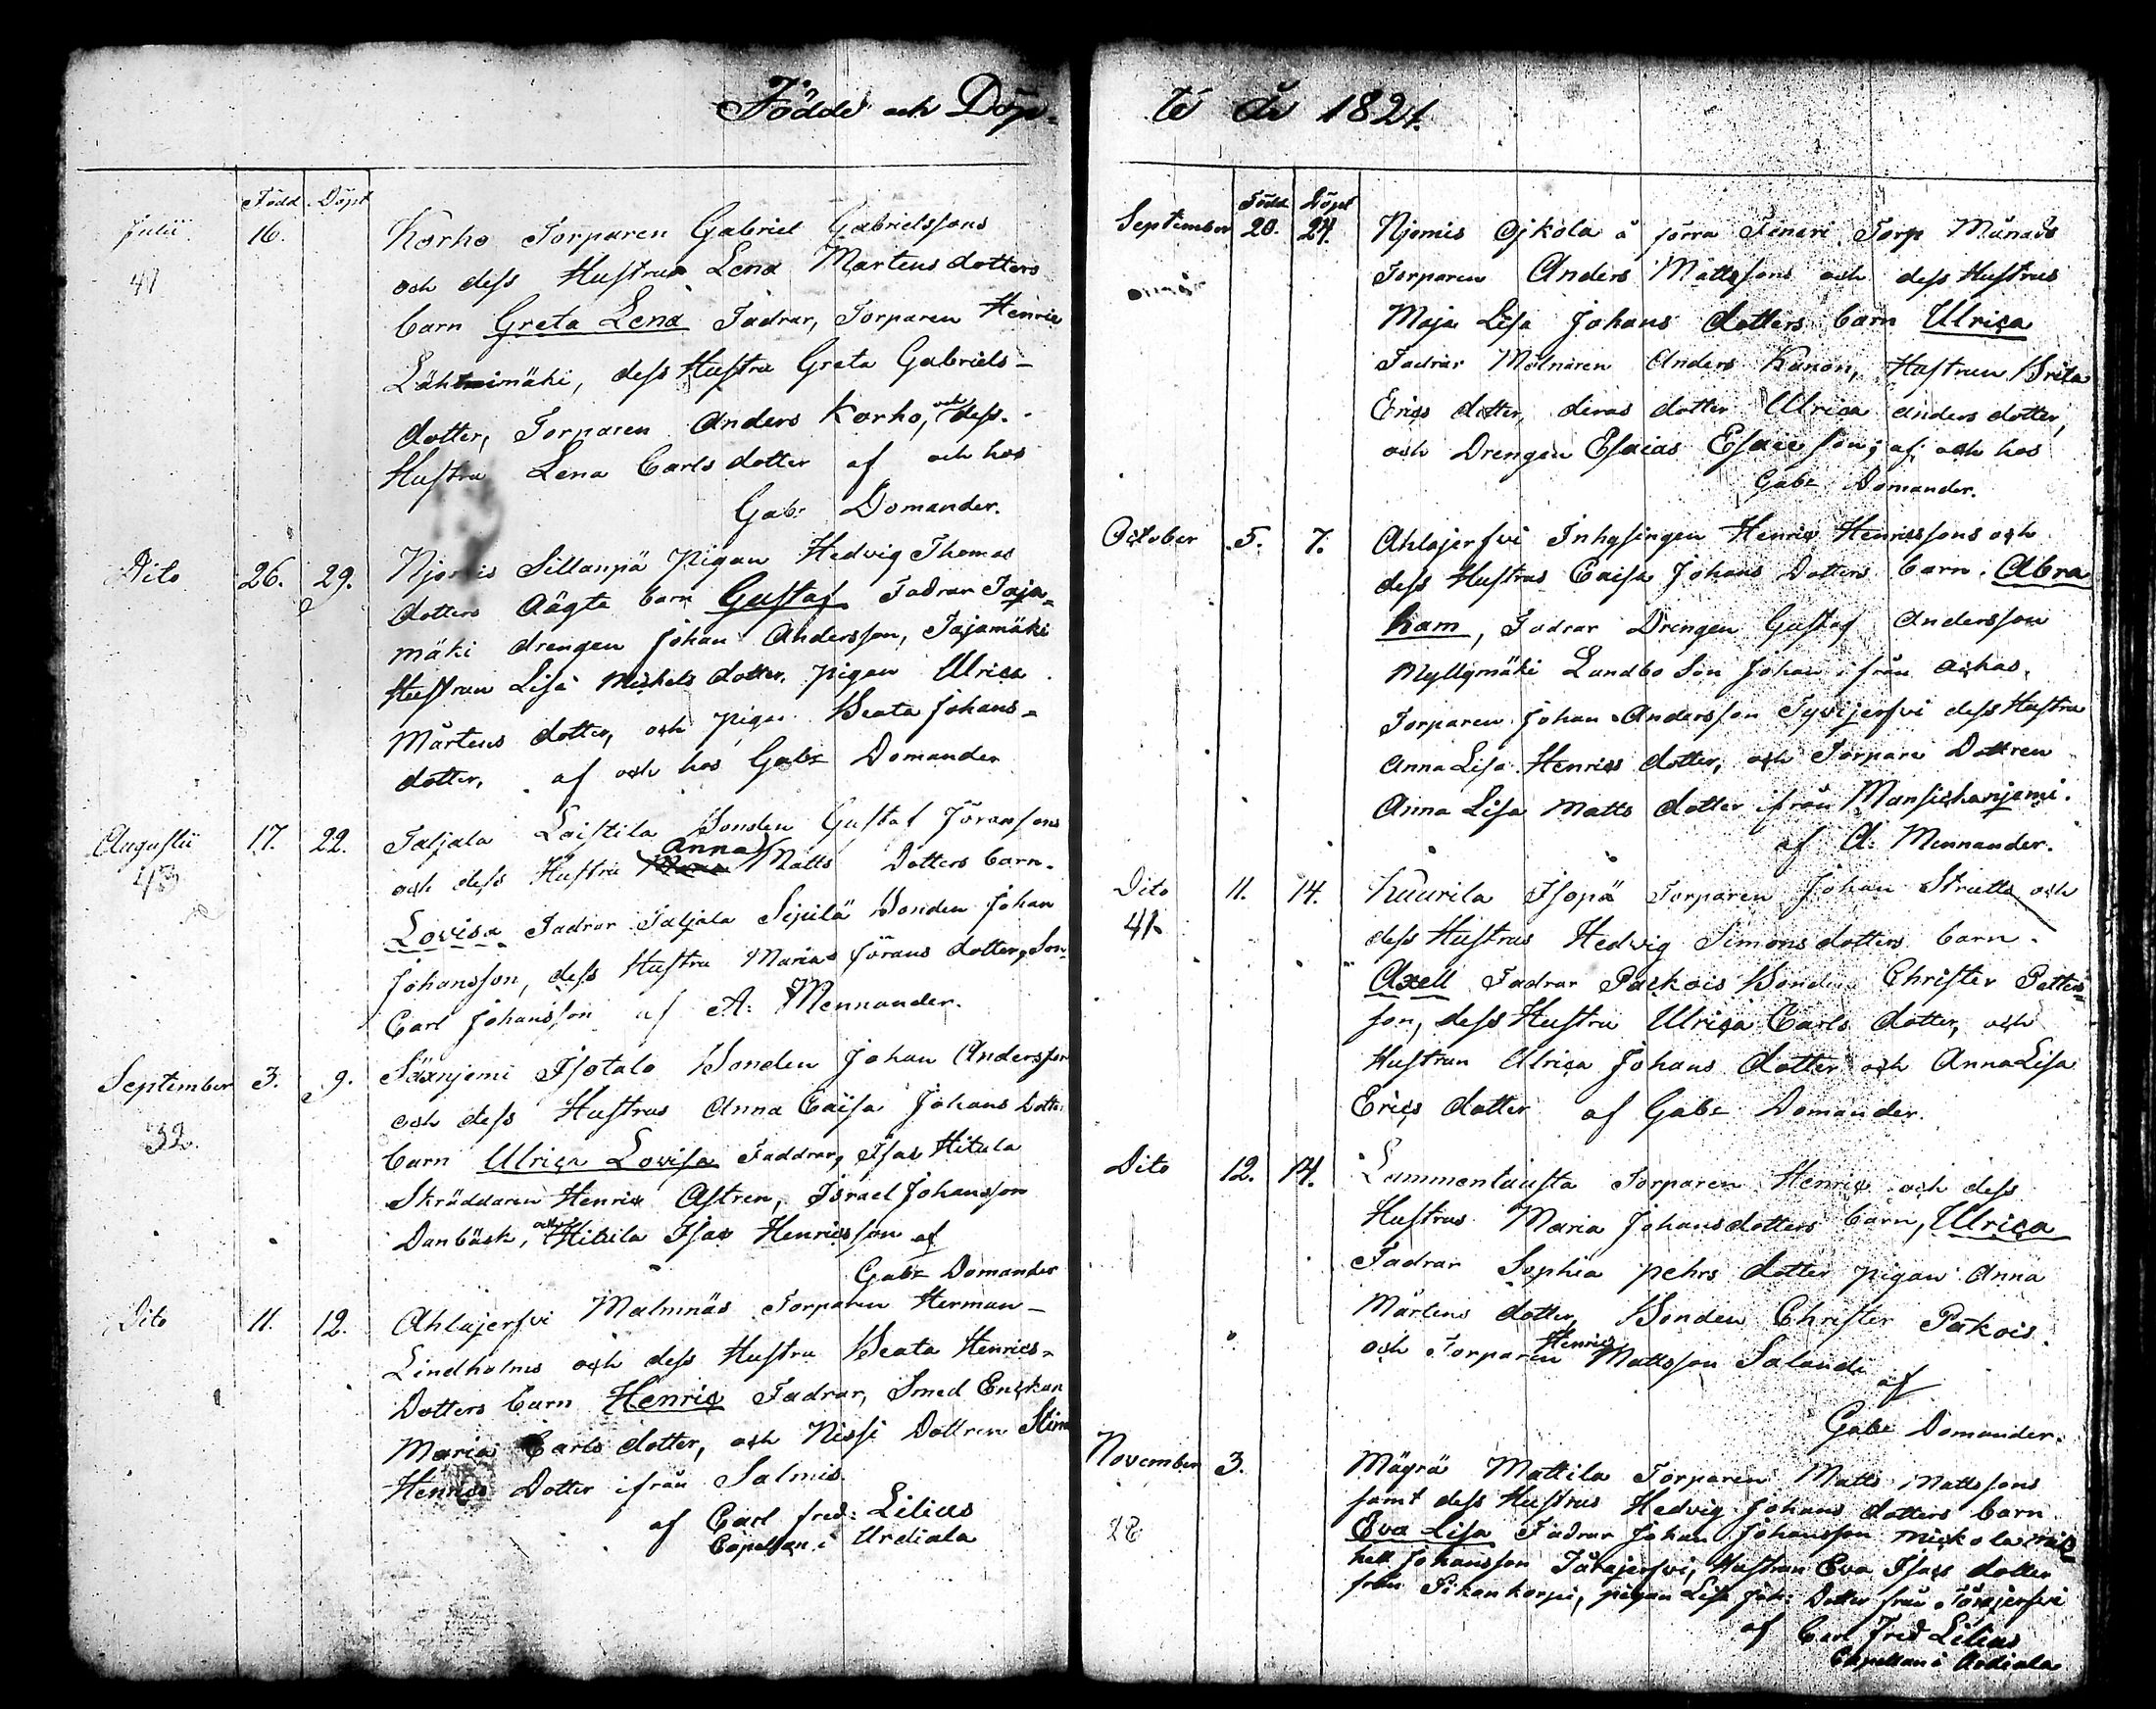 Födde och Döp-
Född Döpt
Julii 16. Korho Torparen Gabriel Gabrielssons
41 och dess Hustrus Lena Martens dotters
barn Greta Lena Fadrar, Torparen Henric
Lähteimäki, dess Hustru Greta Gabriels-
dotter, Torparen Anders Korho, och dess
Hustru Lena Carls dotter af och hos
Gab: Domander.
Dito 26. 29. Njomis Sillanpä Pigan Hedvig Thomas
dotters Oägta barn Gustaf Fadrar Taja-
mäki drengen Johan Andersson, Tajamäki
Hustrun Lisa Michels dotter, pigan Ulrica
Mårtens dotter, och pigan Beata Johans-
dotter, af och hos Gabr Domander
Augustii 17. 22. Taljala Laistila Bonden Gustaf Jöranssons
43 och dess Hustru Anna Matts Dotters barn
Lovisa Fadrar Taljala Sipilä Bonden Johan
Johansson, dess Hustru Maria Jörans dotter, Son
Carl Johansson af A: Mennander.
September 3. 9. Säxnjemi Isotalo Bonden Johan Andersson
och dess Hustrus Anna Caisa Johans Dotte
32. barn Ulrica Lovisa Faddrar, Isac Hitula
Skräddaren Henric Astren, Israel Johansson
Danbäck, och Hitula Isac Henricsson af
Gabr Domander
Dito 11. 12. Ahlajerfvi Malmnäs Torparen Herman
Lindholms och dess Hustru Beata Henrics-
Dotters barn Henric Fadrar, Smed Enckan
Maria Carls dotter, och Nissi Dottren Stina
Henrics Dotter ifrån Salmis.
af Carl Fred: Lilius
Capellan i Urdiala
te År 1821.
Född Döpt
September 20. 24. Njomis Ojkola å Torp
Torparen Anders Mattssons och dess Hustrus
Maja Lisa Johans dotters barn Ulrica
Fadrar Mölnaren Anders Kanon, Hustrun Brita
Erics dotter, deras dotter Ulrica Anders dotter,
och Drengen Esaias Esaiesson; af och hos
Gabr Domander.
October 5. 7. Ahlajerfvi Inhysingen Henric Henricssons och
dess Hustrus Caisa Johans Dotters barn Abra
ham, Fadrar Drengen Gustaf Andersson
Myllymäki Landbo Son Johan ifrån Achas,
Torparen Johan Andersson Tyvijerfvi dess Hustru
Anna Lisa Henrics dotter, och Torpare Dottren
Anna Lisa Matts dotter ifrån Mansickanjemi.
af A. Mennander.
Dito 11. 14. Kuurila Isopä Torparen Johan Strutts och
41. dess Hustrus Hedvig Simons dotters barn
Axell Fadrar Packois Bonden Christer Petters
son, dess Hustru Ulrica Carls dotter, och
Hustrun Ulrica Johans dotter och Anna Lisa
Erics dotter af Gabr Domander.
Dito 12. 14. Lammentausta Torparen Henric och dess
Hustrus Maria Johansdotters barn, Ulrica
Fadrar Sophia pehrs dotter pigan Anna
Mårtens dotter, Bonden Christer Päkois
och Torparen Henric Mattsson Salandi
af
Gabr Domander.
November 3. Mägrä Mattila Torparen Matts Mattssons
samt dess Hustrus Hedvig Johans dotters barn
28 Eva Lisa Fadrar Johan Johansson Mickola Mic
hell Johansson Tårajerfvi, Hustrun Eva Isacs dotter
från Sikankorpi, pigan Lisa Joh: Dotter från Tårajerfvi
af Carl Fred Lilius
Capellan i Urdiala